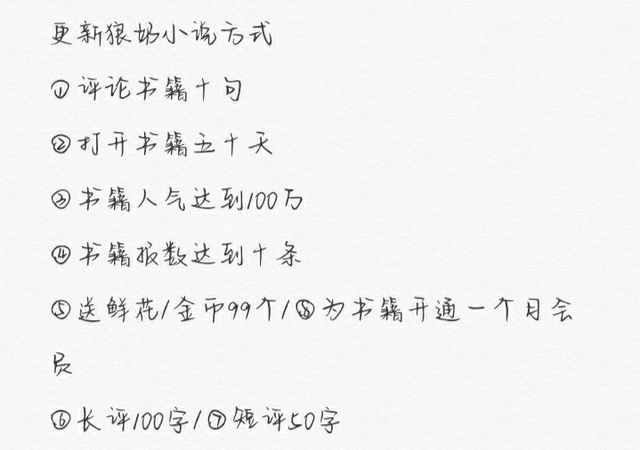 更新狼奶小说方式
①评论书籍十句
②打开书籍五十天
③书籍人气达到100万
④书籍报数达到十条
⑤送鲜花/金币99个/⑧为书籍开通一个月会
员
⑥长评100字/⑦短评50字